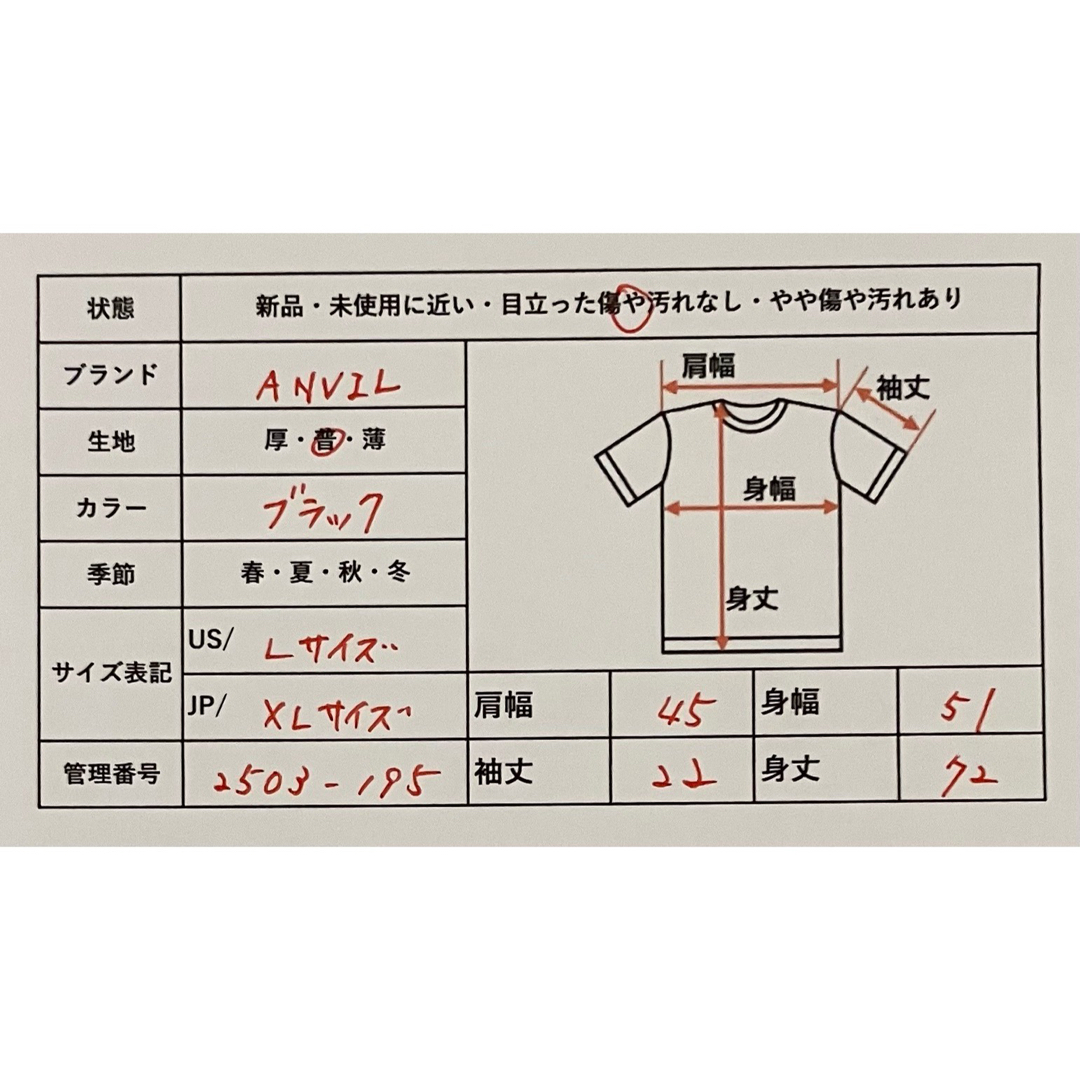 状態 新品・未使用に近い・目立った傷や汚れなし・やや傷や汚れあり
ブランド ANVIL
生地 厚・普・薄
カラー ブラック
季節 春・夏・秋・冬
サイズ表記 US/ Lサイズ
JP/ XLサイズ
管理番号 2503-195
肩幅
袖丈
身幅
身丈
肩幅 45 身幅 51
袖丈 22 身丈 72